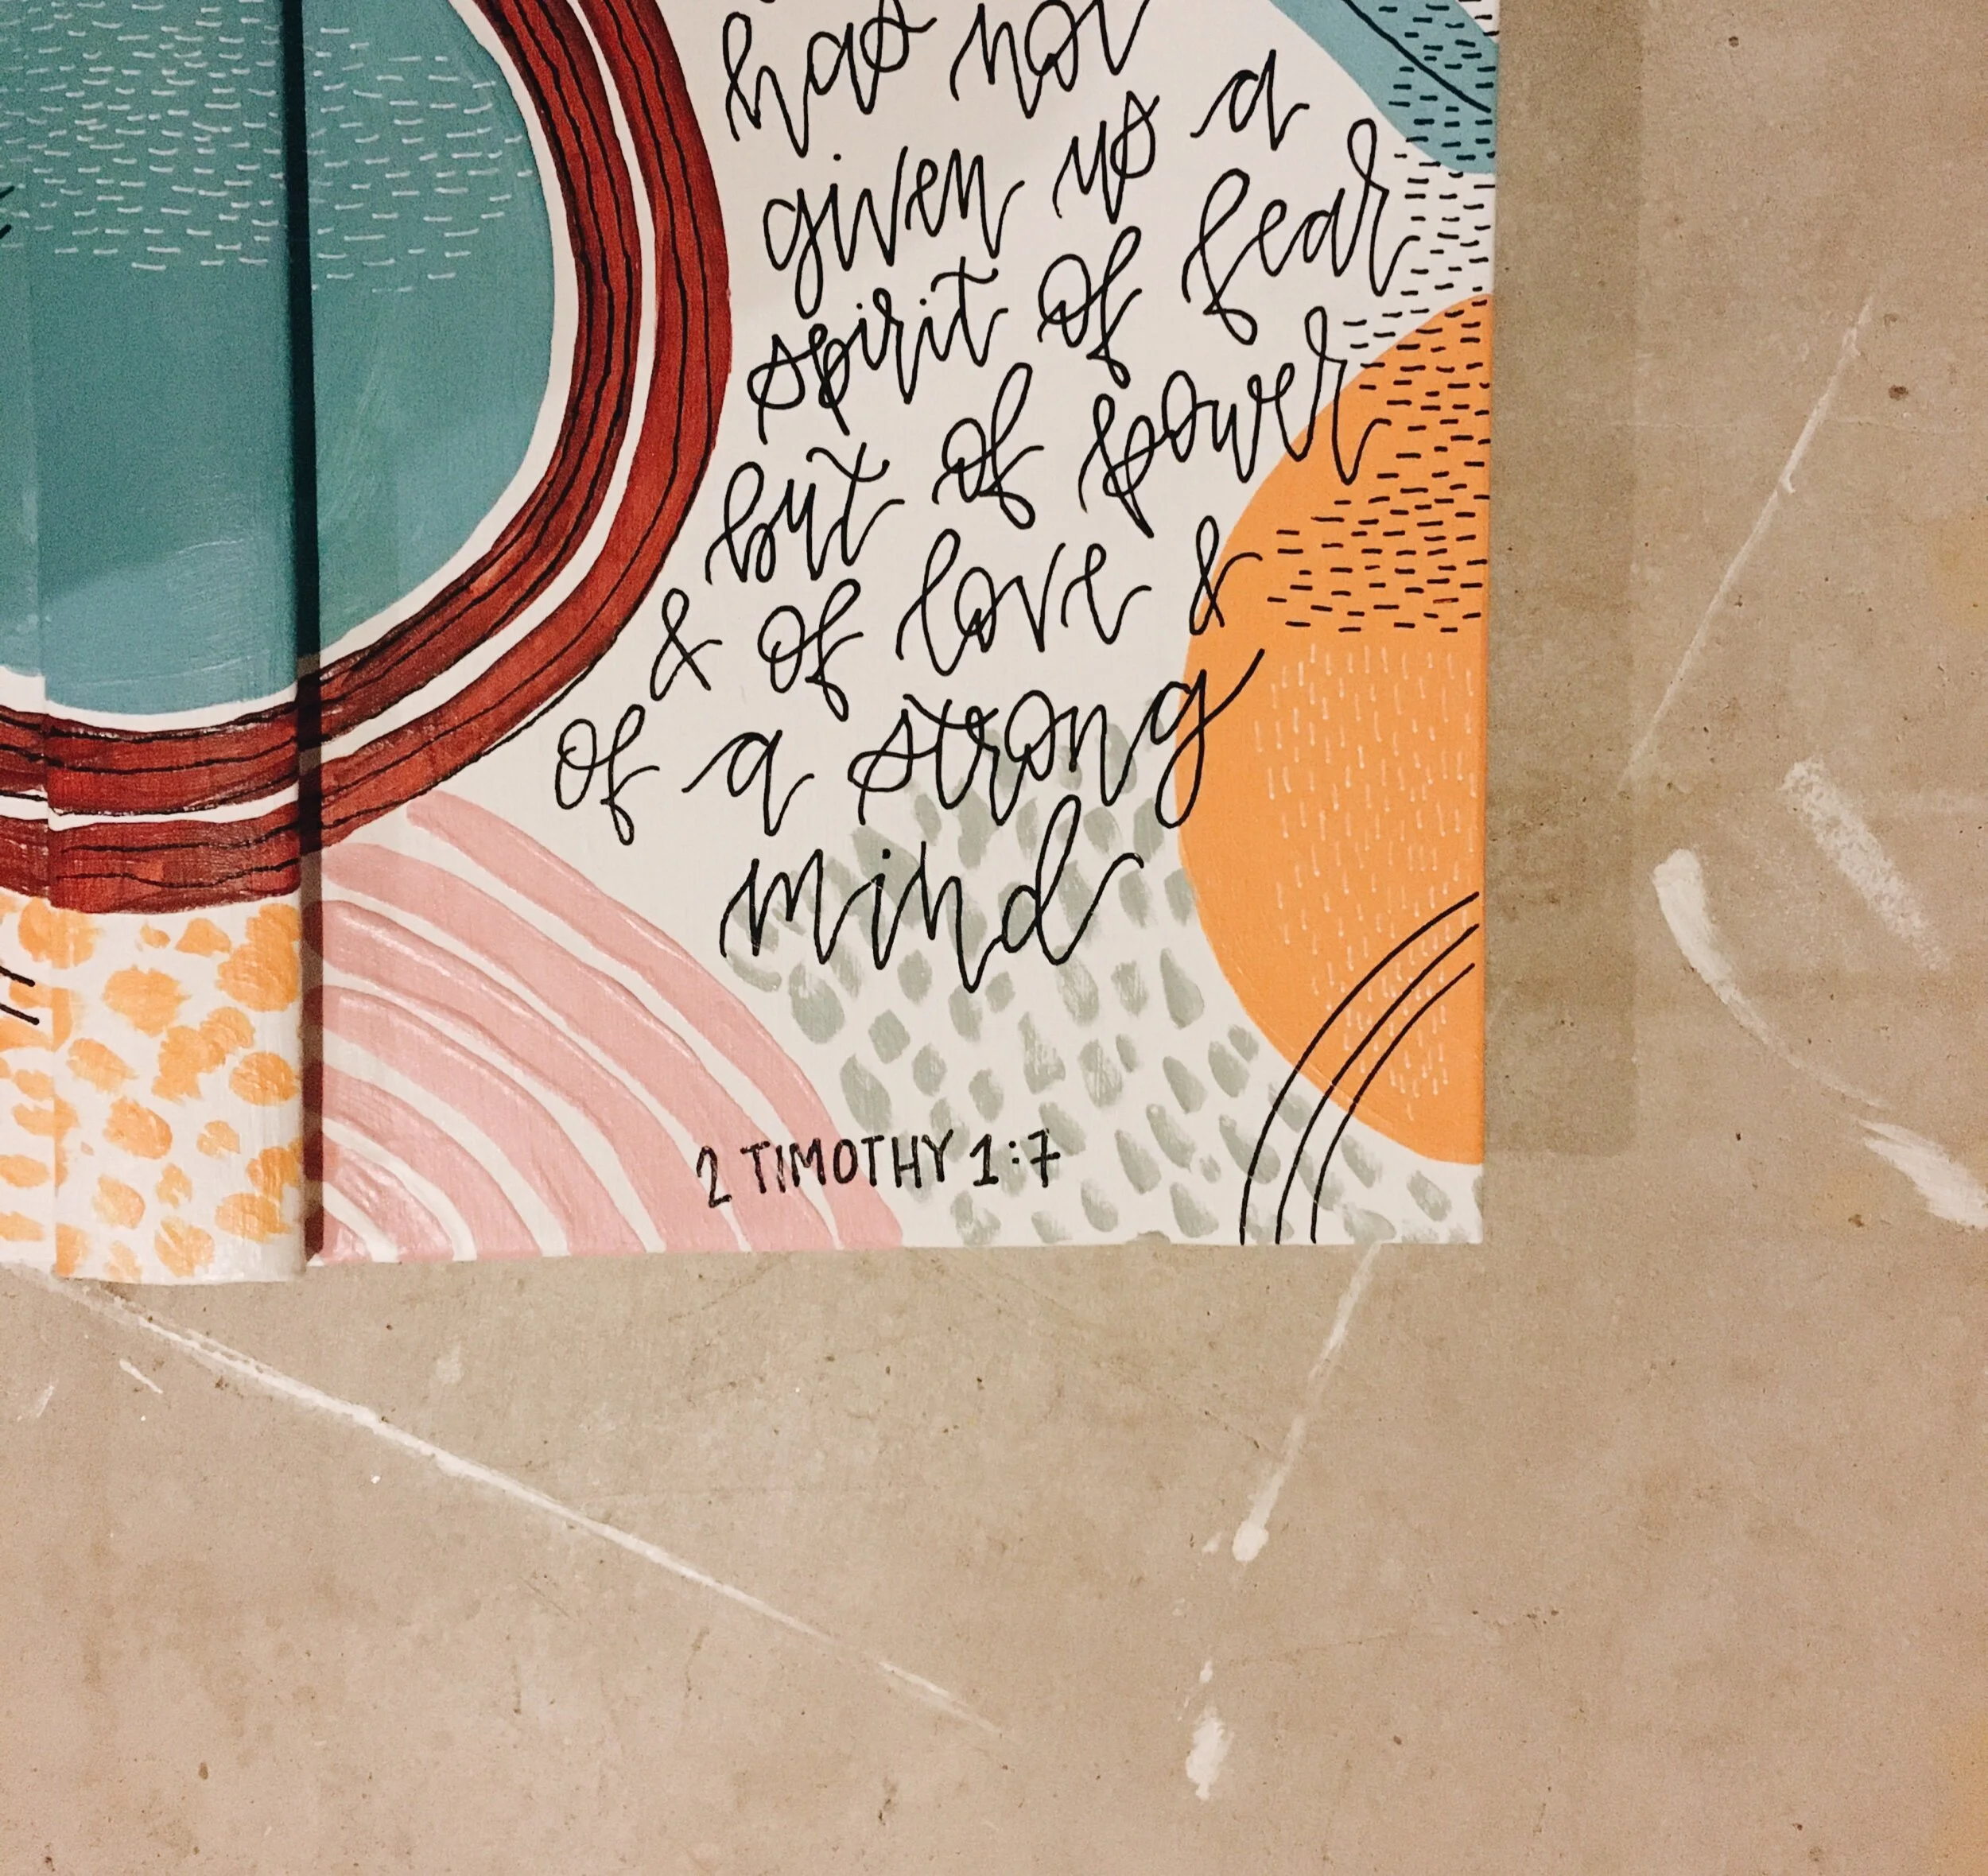 has not
given us a
spirit of fear
but of power
& of love &
of a strong
mind
2 TIMOTHY 1:7